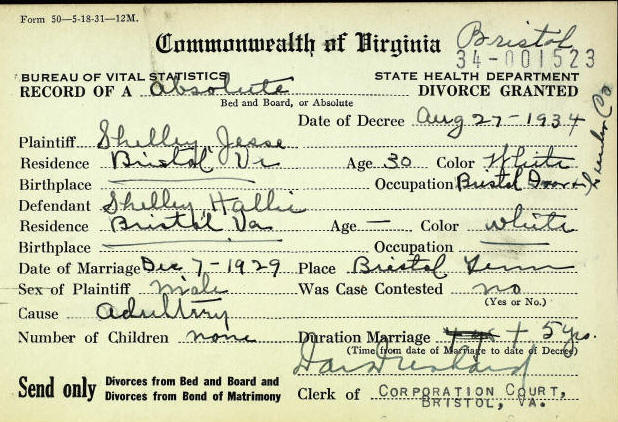 Form 50—5-18-31—12M.
Commonwealth of Virginia Bristol
34-001523
BUREAU OF VITAL STATISTICS STATE HEALTH DEPARTMENT
RECORD OF A Absolute DIVORCE GRANTED
Bed and Board, or Absolute
Date of Decree Aug 27-1934
Plaintiff Shelley, Jesse
Residence Bristol Va Age 30 Color White
Birthplace Occupation Bristol Door & Lumber Co
Defendant Shelley, Hallie
Residence Bristol, Va Age — Color White
Birthplace Occupation
Date of Marriage Dec 7-1929 Place Bristol Tenn
Sex of Plaintiff Male Was Case Contested no
(Yes or No.)
Cause Adultrry
Number of Children none Duration Marriage + 5 yrs.
(Time from date of Marriage to date of Decree)
Send only Divorces from Bed and Board and
Divorces from Bond of Matrimony
Clerk of CORPORATION COURT,
BRISTOL, VA.